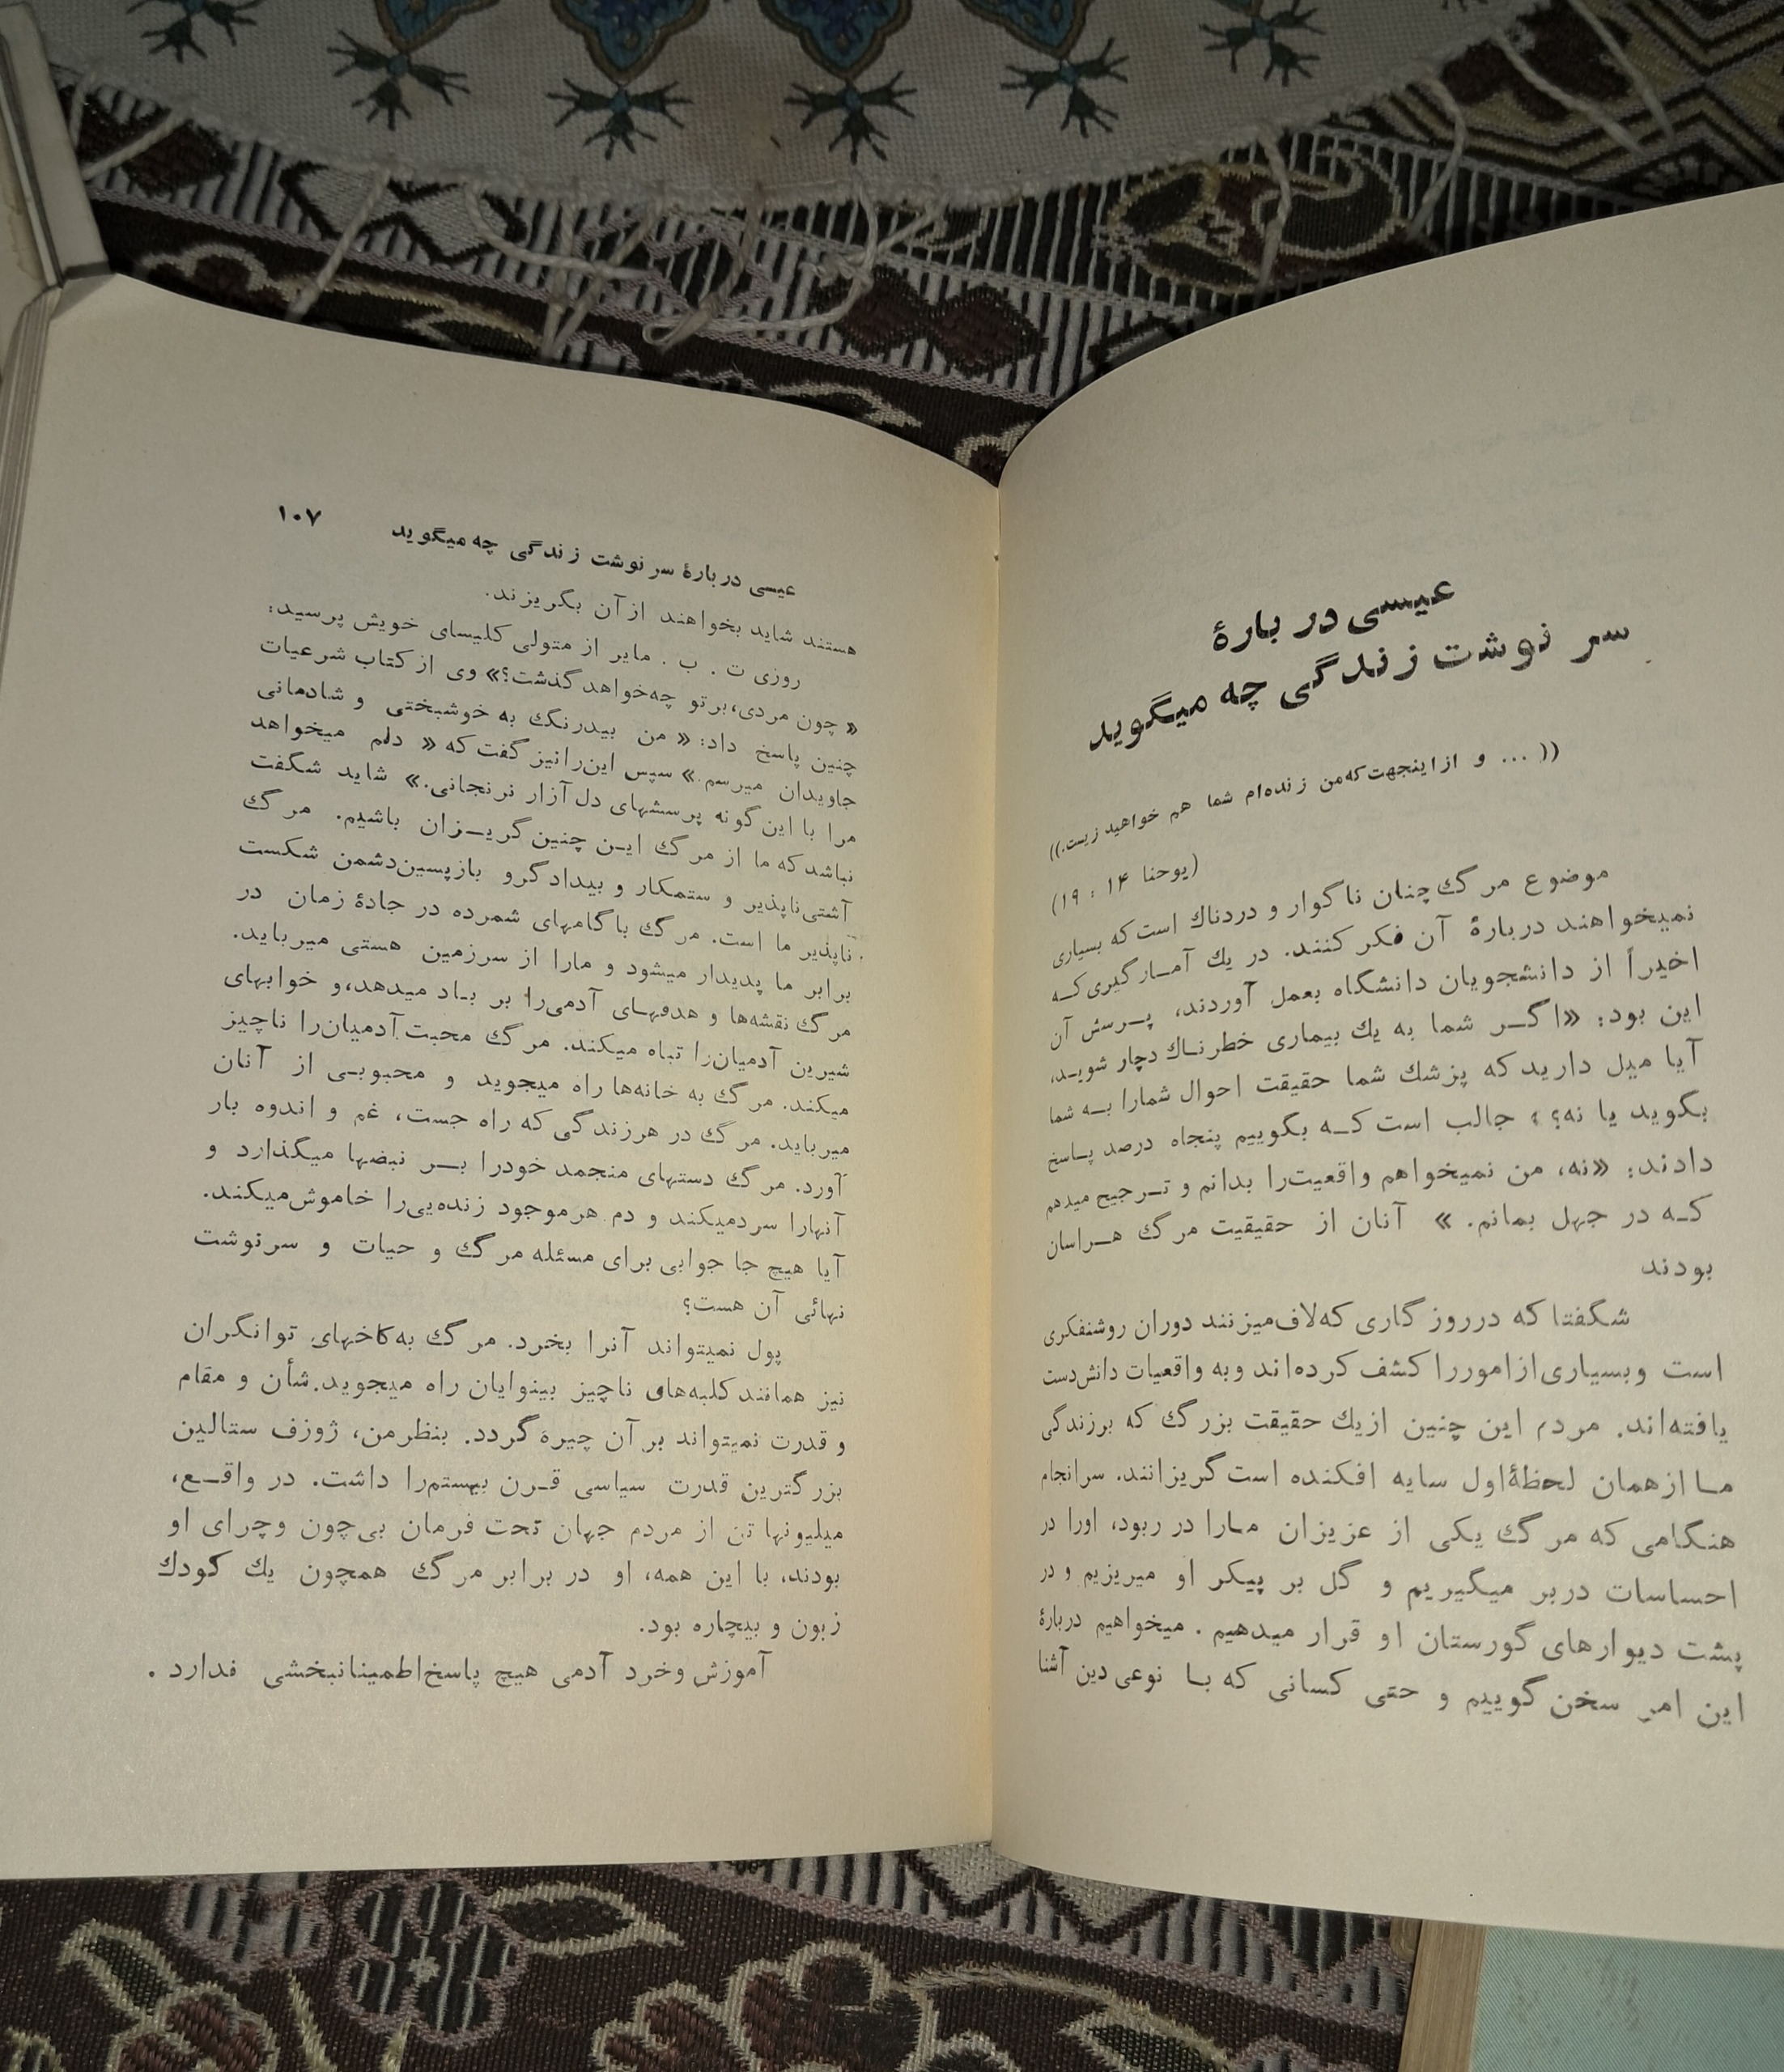 عیسی در بارهٔ
سر نوشت زندگی چه میگوید
(( ... و ازاینجهت‌که‌من زنده‌ام شما هم خواهید زیست.))
(یوحنا ۱۴ : ۱۹)
موضوع مرگ چنان ناگوار و دردناك است که بسیاری
نمیخواهند دربارهٔ آن فکر کنند. در یك آمــارگیری‌کــه
اخیراً از دانشجویان دانشگاه بعمل آوردند، پــرسش آن
این بود: «اگــر شما به یك بیماری خطرنــاك دچار شویــد،
آیا میل دارید که پزشك شما حقیقت احوال شمارا بــه شما
بگوید یا نه؟» جالب است کــه بگوییم پنجاه درصد پــاسخ
دادند: «نه، من نمیخواهم واقعیت‌را بدانم و تــرجیح میدهم
کــه در جهل بمانم. » آنان از حقیقیت مرگ هــراسان
بودند
شگفتا که درروزگاری که‌لاف‌میزنند دوران روشنفکری
است وبسیاری‌ازامورراکشف کرده‌اند وبه واقعیات دانش‌دست
یافته‌اند. مردم این چنین ازیك حقیقت بزرگ که برزندگی
مــا ازهمان لحظهٔ‌اول سایه افکنده است‌گریزانند. سرانجام
هنگامی که مرگ یکی از عزیزان مارا در ربود، اورا در
احساسات دربر میگیریم و گل بر پیکر او میریزیم و در
پشت دیوارهای گورستان او قرار میدهیم . میخواهیم دربارهٔ
این امر سخن گوییم و حتی کسانی که بــا نوعی دین آشنا
عیسی دربارهٔ سر نوشت زندگی چه میگوید ۱۰۷
هستند شاید بخواهند ازآن بگریزند.
روزی ت . ب . مایر از متولی کلیسای خویش پرسید:
« چون مردی،برتو چه‌خواهد گذشت؟» وی ازکتاب شرعیات
چنین پاسخ داد: « من بیدرنگ به خوشبختی و شادمانی
جاویدان میرسم.» سپس این‌رانیز گفت که « دلم میخواهد
مرا با این‌گونه پرسشهای دل آزار نرنجانی.» شاید شگفت
نباشدکه ما از مرگ ایــن چنین‌گریــزان باشیم. مرگ
آشتی‌ناپذیر و ستمکار و بیدادگرو بازپسین‌دشمن شکست
ناپذیر ما است. مرگ باگامهای شمرده در جادهٔ زمان در
برابر ما پدیدار میشود و مارا از سرزمین هستی میرباید.
مرگ نقشه‌ها و هدفهــای آدمی‌را بر بــاد میدهد،و خوابهای
شیرین آدمیان‌را تباه میکند. مرگ محبت‌آدمیان‌را ناچیز
میکند. مرگ به خانه‌ها راه میجوید و محبوبــی از آنان
میرباید. مرگ در هرزندگی که راه جست، غم و اندوه بار
آورد. مرگ دستهای منجمد خودرا بــر نبضها میگذارد و
آنهارا سردمیکند و دم هرموجود زنده‌یی‌را خاموش‌میکند.
آیا هیچ جا جوابی برای مسئله مرگ و حیات و سرنوشت
نهائی آن هست؟
پول نمیتواند آنرا بخرد. مرگ به‌کاخهای توانگران
نیز همانند کلبه‌های ناچیز بینوایان راه میجوید.شأن و مقام
و قدرت نمیتواند برآن چیره گردد. بنظرمن، ژوزف ستالین
بزرگترین قدرت سیاسی قــرن بیستم‌را داشت. در واقــع،
میلیونها تن از مردم جهان تحت فرمان بی‌چون وچرای او
بودند، با این همه، او در برابر مرگ همچون یك كودك
زبون و بیچاره بود.
آموزش وخرد آدمی هیچ پاسخ‌اطمینانبخشی ندارد .